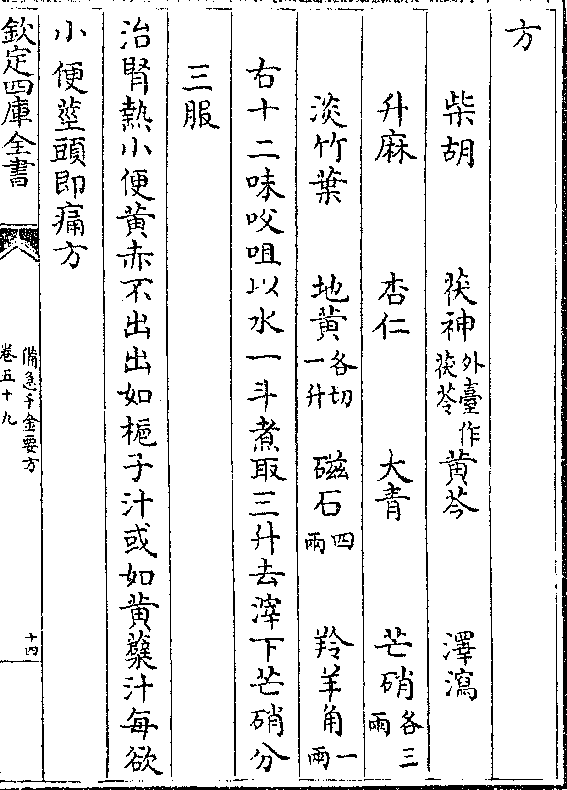 方
柴胡 茯神外臺作茯苓 黄芩 澤瀉
升麻 杏仁 大青 芒硝各三兩
淡竹葉 地黄各切一升 磁石四兩 羚羊角一兩
右十二味㕮咀以水一斗煮取三升去滓下芒硝分
三服
治腎熱小便黄赤不出出如梔子汁或如黄蘗汁每欲
小便莖頭即痛方
欽定四庫全書
備急千金要方
卷五十九
十四